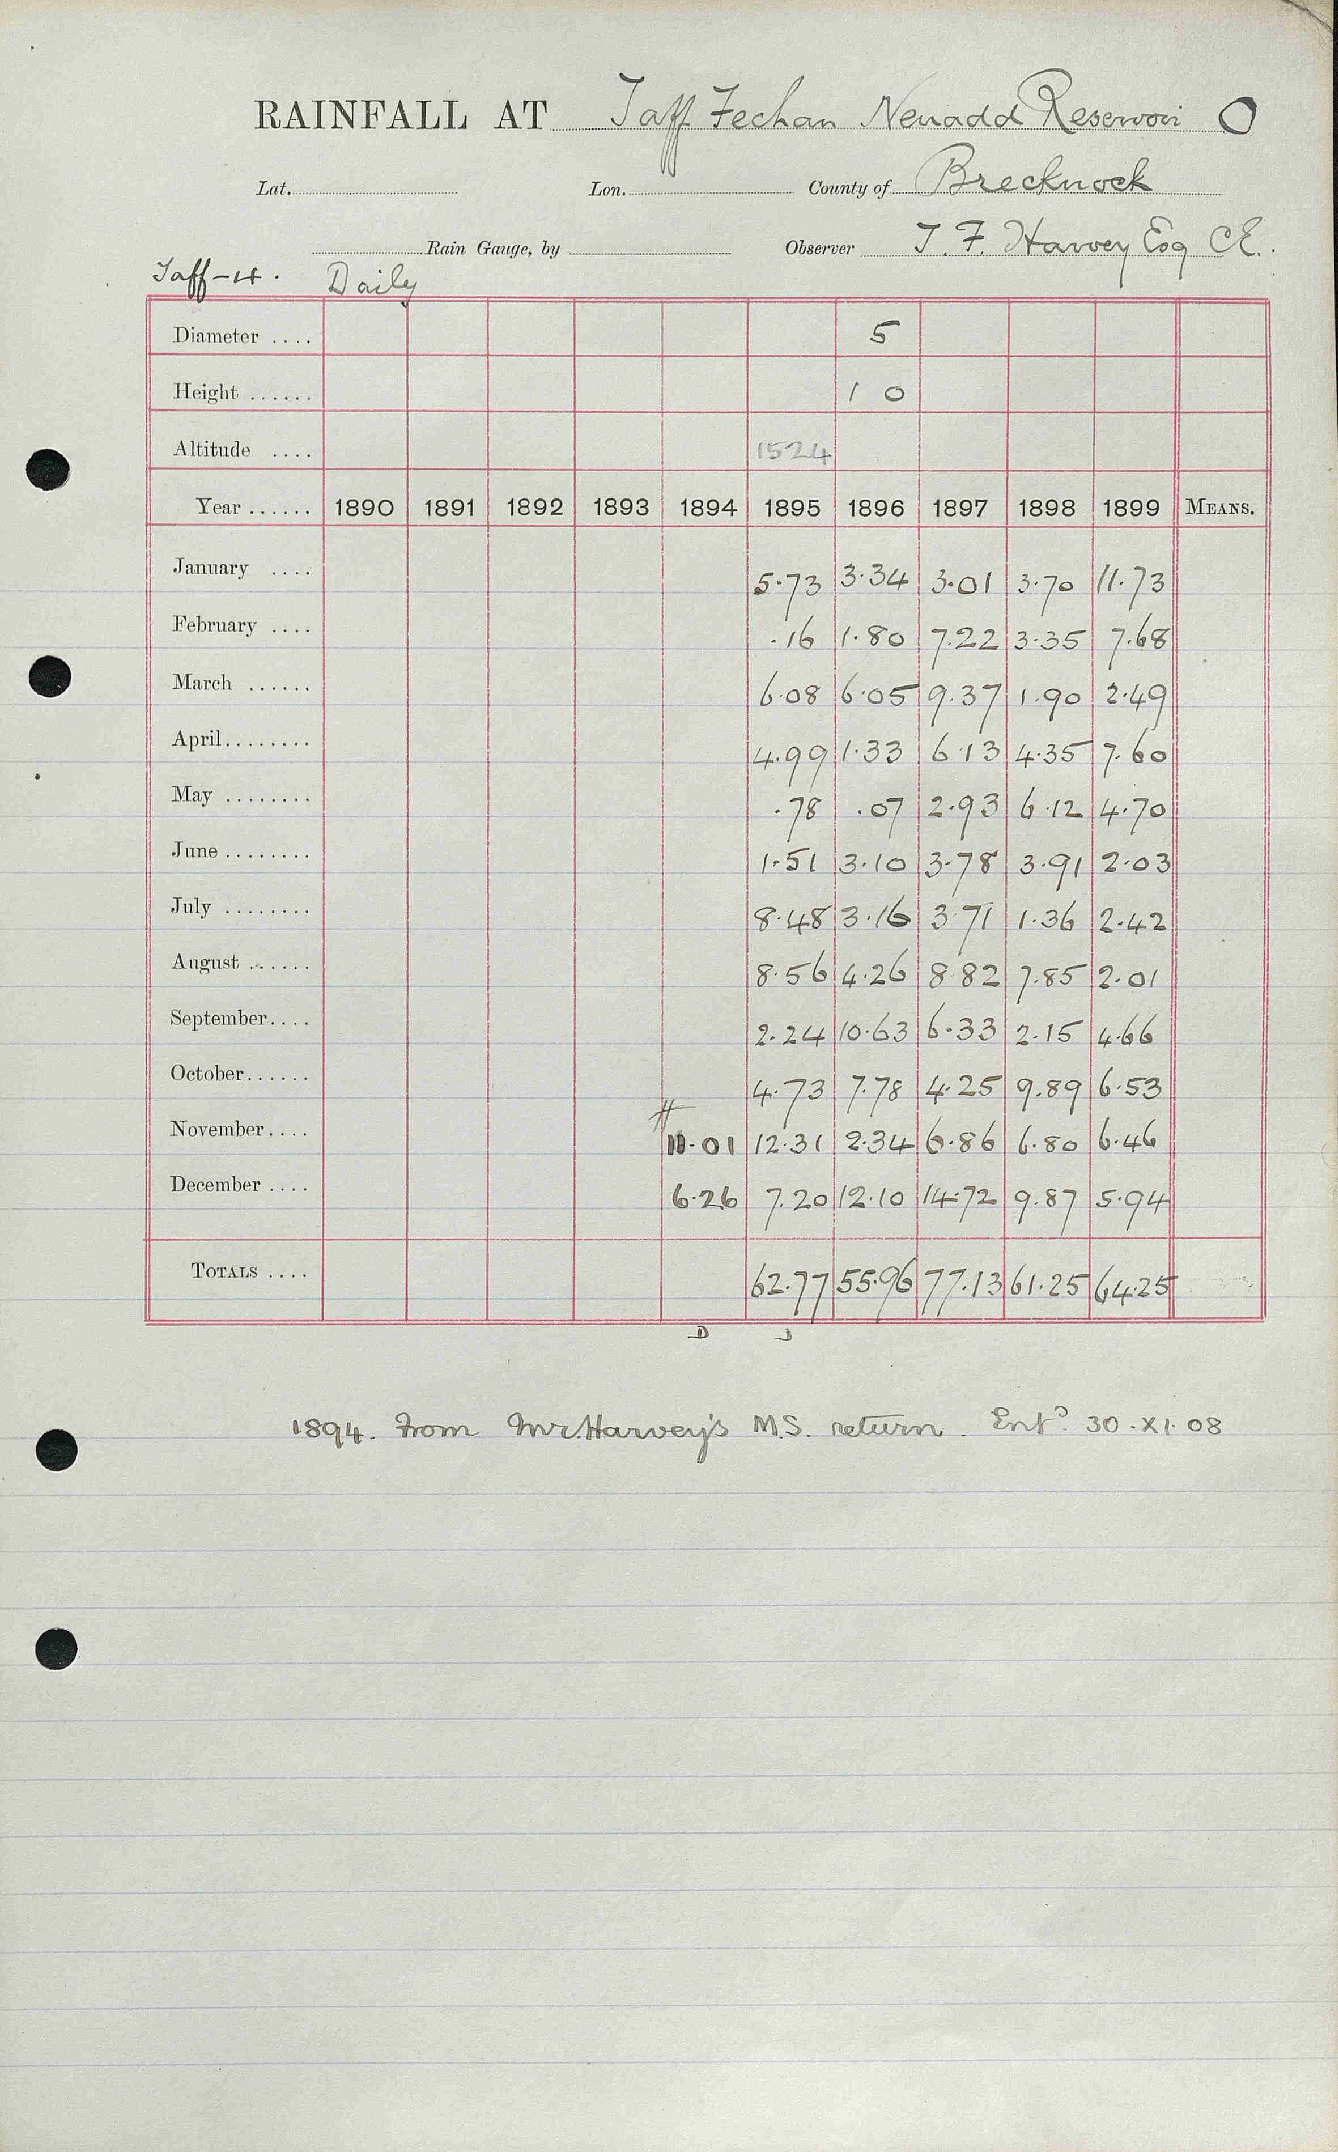 RAINFALL AT Taff Fechan Neuadd Reservoir O
Lat. Lon. County of Brecknock
Rain Gauge, by Observer T. F. Harvey Esq CE.
Taff-4. Daily
Diameter .... 5
Height ...... 1 0
Altitude .... 1524
Year ...... 1890 1891 1892 1893 1894 1895 1896 1897 1898 1899 MEANS.
January .... 5.73 3.34 3.01 3.70 11.73
February .... .16 1.80 7.22 3.35 7.68
March ...... 6.08 6.05 9.37 1.90 2.49
April........ 4.99 1.33 6.13 4.35 7.60
May ........ .78 .07 2.93 6.12 4.70
June ........ 1.51 3.10 3.78 3.91 2.03
July ........ 8.48 3.16 3.71 1.36 2.42
August ...... 8.56 4.26 8.82 7.85 2.01
September.... 2.24 10.63 6.33 2.15 4.66
October...... 4.73 7.78 4.25 9.89 6.53
#
November.... 11.01 12.31 2.34 6.86 6.80 6.46
December .... 6.26 7.20 12.10 14.72 9.87 5.94
TOTALS .... 62.77 55.96 77.13 61.25 64.25
D J
1894. From Mr. Harvey's M.S. return. Entd 30.XI.08